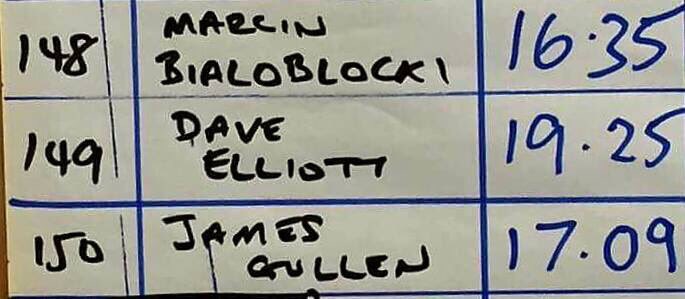 148 MARCIN BIALOBLOCKI 16.35
149 DAVE ELLIOTT 19.25
150 JAMES GULLEN 17.09